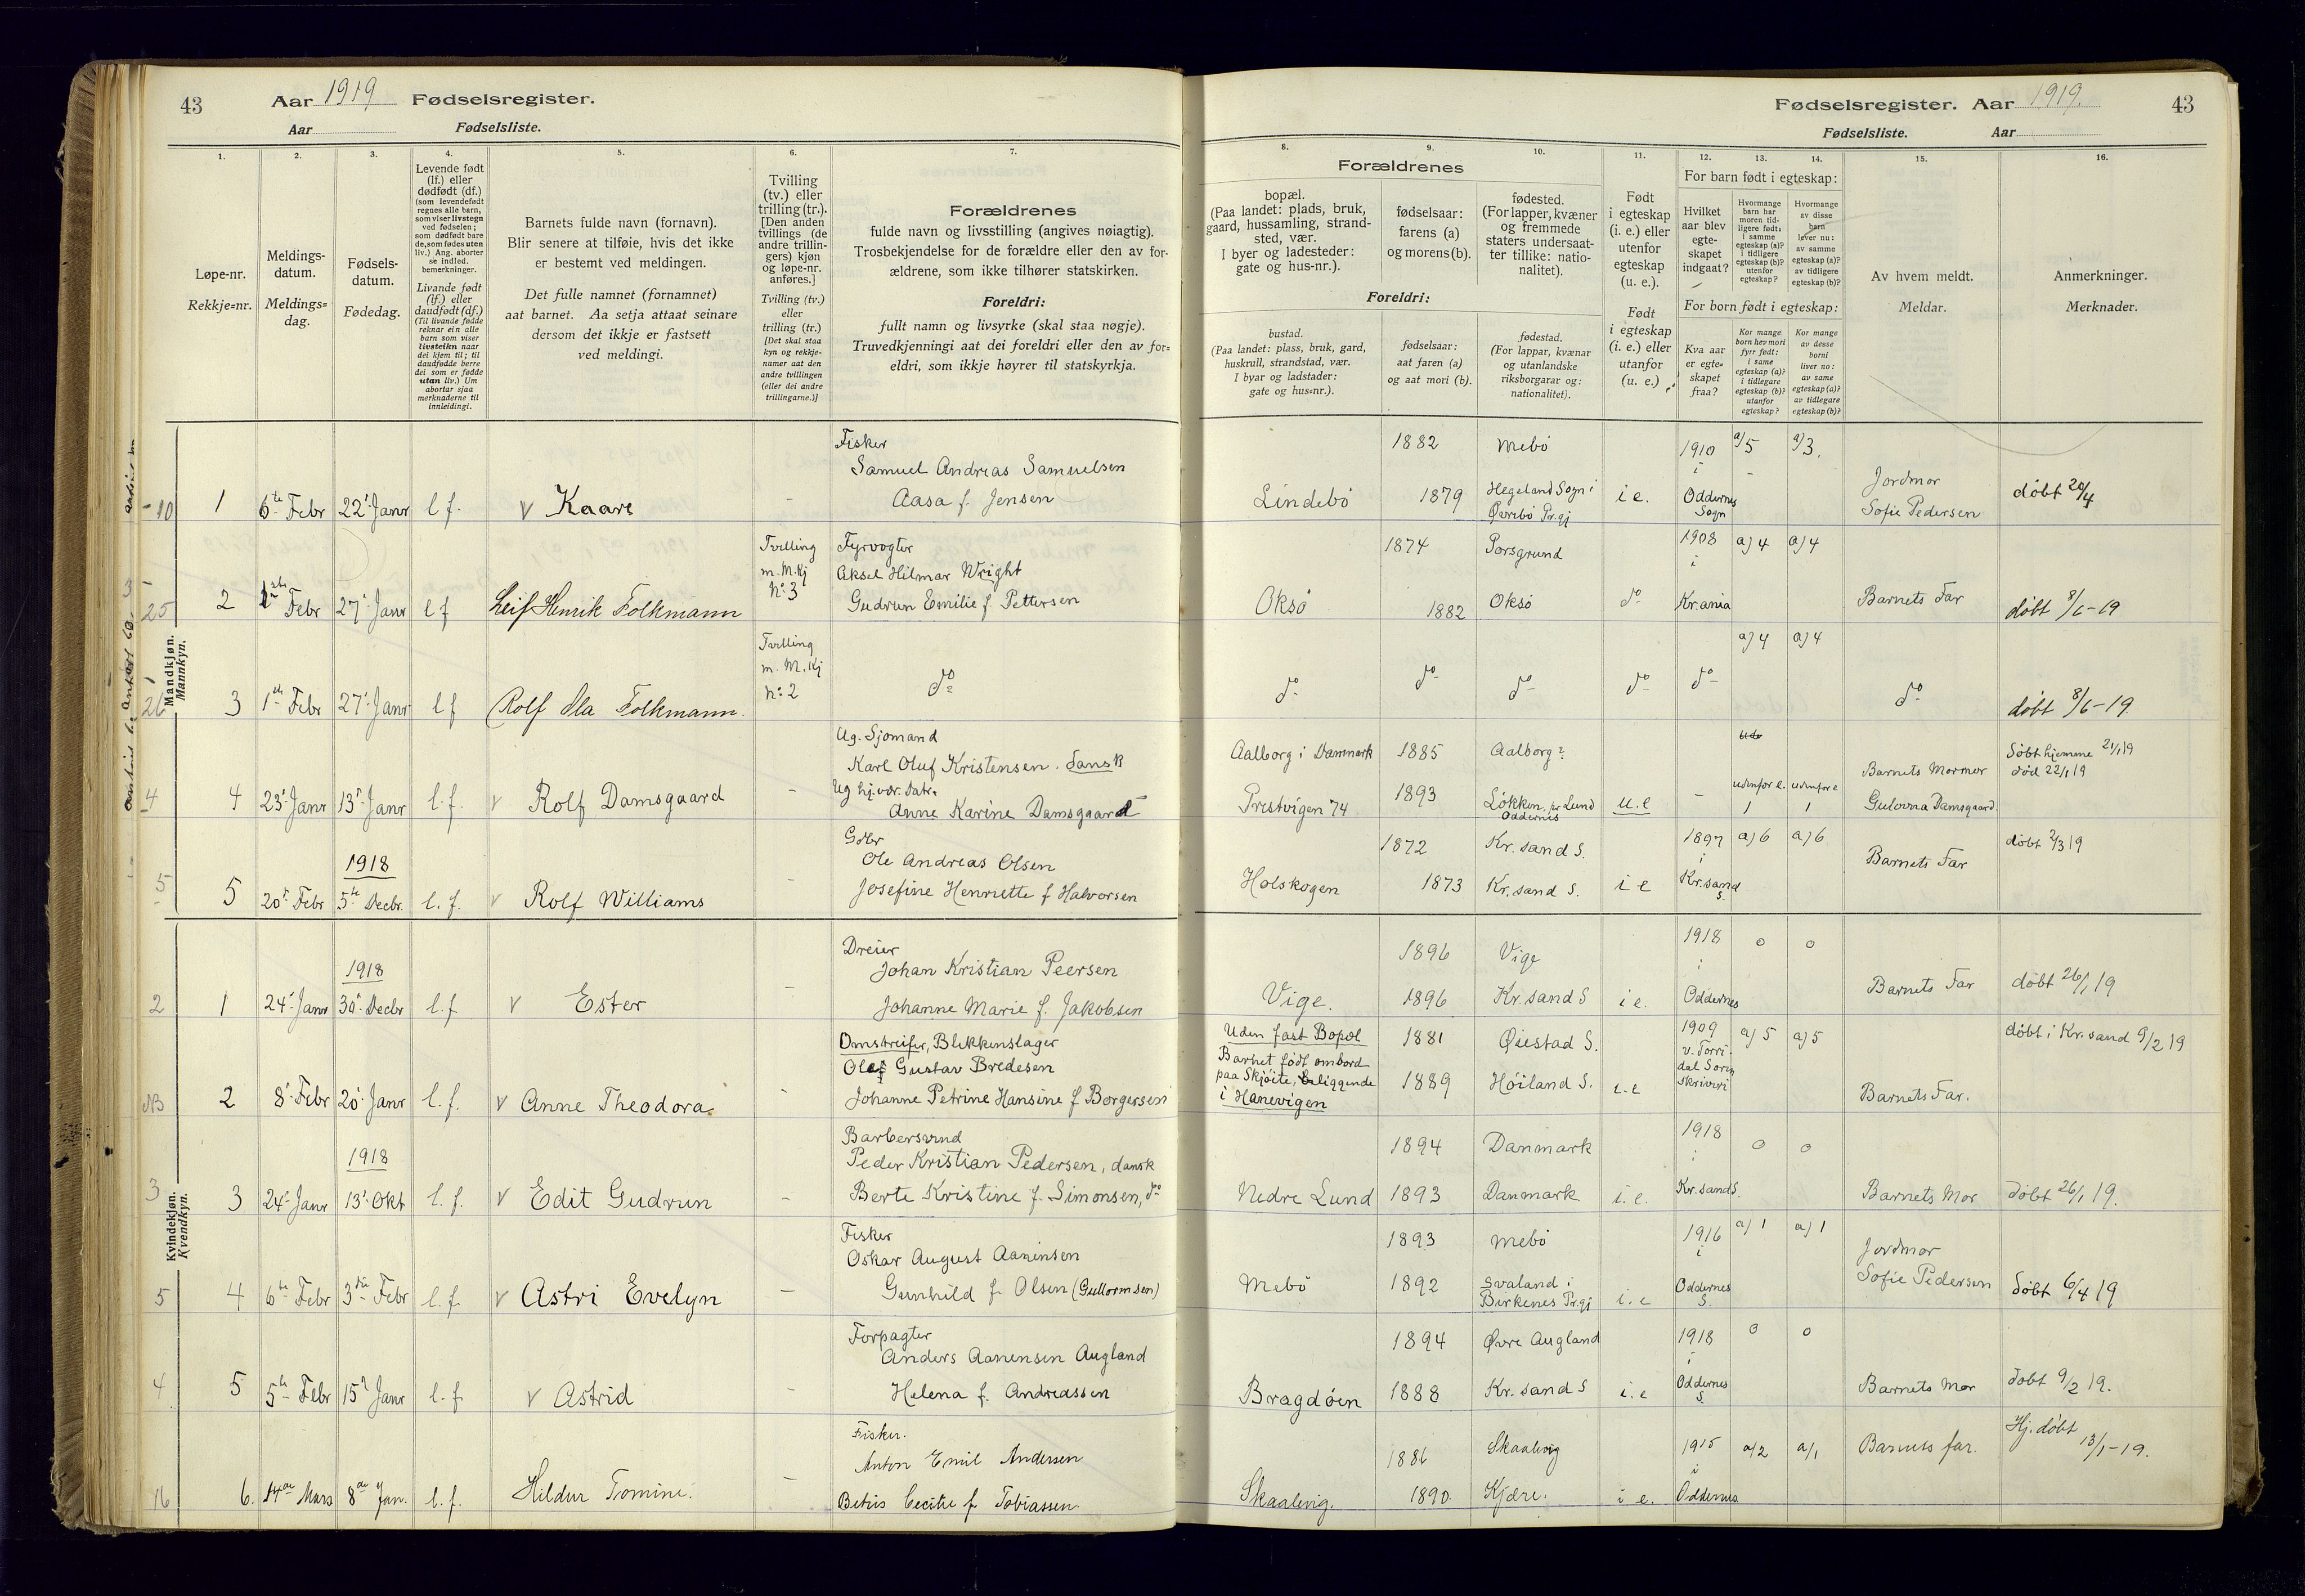 43 Aar 1919 Fødselsregister.
Aar Fødselsliste.
Fødselsregister. Aar 1919. 43
Fødselsliste. Aar
1. 2. 3. 4. 5. 6. 7.
Løpe-nr.
Rekkje-nr.
Meldings-
datum.
Meldings-
dag.
Fødsels-
datum.
Fødedag.
Levende født
(lf.) eller
dødfødt (df.)
(som levendefødt
regnes alle barn,
som viser livstegn
ved fødselen;
som dødfødt bare
de, som fødes uten
liv.) Ang. aborter
se indled.
bemerkninger.
Livande født
(lf.) eller
daudfødt (df.)
(Til livande fødde
reknar ein alle
barn som viser
livsteikn naar
dei kjem til; til
daudfødde berre
dei som er fødde
utan liv.) Um
abortar sjaa
merknaderne til
innleidingi.
Barnets fulde navn (fornavn).
Blir senere at tilføie, hvis det ikke
er bestemt ved meldingen.
Det fulle namnet (fornamnet)
aat barnet. Aa setja attaat seinare
dersom det ikkje er fastsett
ved meldingi.
Tvilling
(tv.) eller
trilling (tr.).
[Den anden
tvillings (de
andre trillin-
gers) kjøn
og løpe-nr.
anføres.]
Tvilling (tv.)
eller
trilling (tr.)
[Det skal staa
kyn og rekkje-
numer aat den
andre tvillingen
(eller dei andre
trillingarne.)]
Forældrenes
fulde navn og livsstilling (angives nøiagtig).
Trosbekjendelse for de forældre eller den av for-
ældrene, som ikke tilhører statskirken.
Foreldri:
fullt namn og livsyrke (skal staa nøgje).
Truvedkjenningi aat dei foreldri eller den av for-
eldri, som ikkje høyrer til statskyrkja.
8. 9. 10. 11. 12. 13. 14. 15. 16.
Forældrenes
bopæl.
(Paa landet: plads, bruk,
gaard, hussamling, strand-
sted, vær.
I byer og ladesteder:
gate og hus-nr.).
fødselsaar:
farens (a)
og morens (b).
fødested.
(For lapper, kvæner
og fremmede
staters undersaat-
ter tillike: natio-
nalitet).
Foreldri:
bustad.
(Paa landet: plass, bruk, gard,
huskrull, strandstad, vær.
I byar og ladstader:
gate og hus-nr.).
fødselsaar:
aat faren (a)
og aat mori (b).
fødestad.
(For lappar, kvænar
og utanlandske
riksborgarar og:
nationalitet).
Født
i egteskap
(i. e.) eller
utenfor
egteskap
(u. e.).
Født
i egteskap
(i. e.) eller
utanfor
(u. e.)
For barn født i egteskap:
Hvilket
aar blev
egte-
skapet
indgaat?
Hvormange
barn har
moren tid-
ligere født:
i samme
egteskap (a)?
i tidligere
egteskap (b)?
utenfor
egteskap?
Hvormange
av disse
barn
lever nu:
av samme
egteskap (a)?
av tidligere
egteskap (b)?
For born født i egteskap:
Kva aar
er egte-
skapet
fraa?
Kor mange
born hev mori
fyrr født:
i same
egteskap (a)?
i tidlegare
egteskap (b)?
utanfor
egteskap?
Kor mange
av desse
borni
liver no:
av same
egteskap (a)?
av tidlegare
egteskap (b)?
Av hvem meldt.
Meldar.
Anmerkninger.
Merknader.
Mandkjøn.
Mannkyn.
10 1 6te Febr 22' Janr l f. v Kaare -
Fisker
Samuel Andreas Samuelsen
Aasa f. Jensen
Lindebø
1882 Mebö
1879 Hegeland Sogn i
Øvrebö Pr.gj
i e. 1910
i
Oddernes
Sogn
a/5 a/3.
Jordmor
Sofie Pedersen
döbt 20/4
25 2 1ste Febr 27' Janr l f Leif Henrik Folkmann
Tvilling
m. M.Kj
No 3
Fyrvogter
Aksel Hilmar Wright
Gudrun Emilie f Pettersen
Oksö
1874 Porsgrund
1882 Oksö
do 1908
i
Kr.ania
a) 4 a) 4
Barnets Far
döbt 8/6-19
26 3 1ste Febr 27' Janr l f Rolf Ola Folkmann.
Tvilling
m. M. Kj
No 2
do
do do do do do
a) 4 a) 4
do
döbt 8/6-19
4 4 23' Janr 13' Janr l.f. v Rolf Damsgaard -
Ug. Sjömand
Karl Oluf Kristensen. dansk
Ug hj.vær. Datr.
Anne Karine Damsgaard
Aalborg i Danmark 1885 Aalborg?
Prestvigen 74 1893 Lökken, pr Lund
Oddernes
u.e -
udenfor e. udenfor e
1 1
Barnets Mormor
Gulovna Damsgaard.
Döbt hjemme 21/1 19
död 22/1 19
5 5 20' Febr 1918
5te Decbr. l. f. v Rolf Williams -
Gdbr
Ole Andreas Olsen
Josefine Henriette f Halvorsen
Holskogen
1872 Kr. sand S.
1873 Kr. sand S.
i e 1897
i
Kr.sand
S.
a) 6 a) 6
Barnets Far
döbt 2/3 19
Kvindekjøn.
Kvendkyn.
2 1 24' Janr 1918
30' Decbr l.f. v Ester -
Dreier
Johan Kristian Peersen
Johanne Marie f. Jakobsen
Vige.
1896 Vige
1896 Kr. sand S
i e. 1918
i
Oddernes
0 0
Barnets Far
döbt 26/1 19
NB 2 8' Febr 20' Janr l. f. v Anne Theodora. -
Omstreifer, Blikkenslager
Olaf Gustav Bredesen
Johanne Petrine Hansine f Borgersen
Uden fast Bopæl
Barnet födt ombord
paa Skjöite, beliggende
i Hanevigen
1881 Øiestad S.
1889 Höiland S.
i.e
1909
v. Torri-
dal Soren
skriveri
a) 5 a) 5
Barnets Far.
döbt i Kr. sand 9/2 19
3 3 24' Janr 1918
13' Okt l. f. v Edit Gudrun -
Barbersvend
Peder Kristian Pedersen, dansk
Berte Kristine f. Simonsen, do
Nedre Lund
1894 Danmark
1893 Danmark
i. e. 1918
i
Kr. sand S.
0 0
Barnets Mor
döbt 26/1 19.
5 4 6te Febr 3die Febr l. f. v Astri Evelyn -
Fisker
Oskar August Aanensen
Gunhild f. Olsen (Gullormsen)
Mebö
1893 Mebö
1892 Svaland i
Birkenes Pr.gj
i. e 1916
i
Oddernes
S.
a) 1 a) 1
Jordmor
Sofie Pedersen
döbt 6/4 19
4 5 5te Febr 15' Janr l. f. v Astrid -
Forpagter
Anders Aanensen Augland
Helena f. Andreassen
Bragdöen
1894 Øvre Augland
1888 Kr. sand S
i. e 1918
i
Oddernes
S.
0 0
Barnets Mor
döbt 9/2 19.
16 6. 14de Mars 8de Jan. l. f. Hildur Tomine. -
Fisker.
Anton Emil Andersen
Betsis Cecilie f Tobiassen.
Skaalevig.
1886 Skaalevig
1890. Kjære.
i e. 1915
i
Oddernes
a/2 a/1
Barnets far.
Hj. døbt
13/1-19.